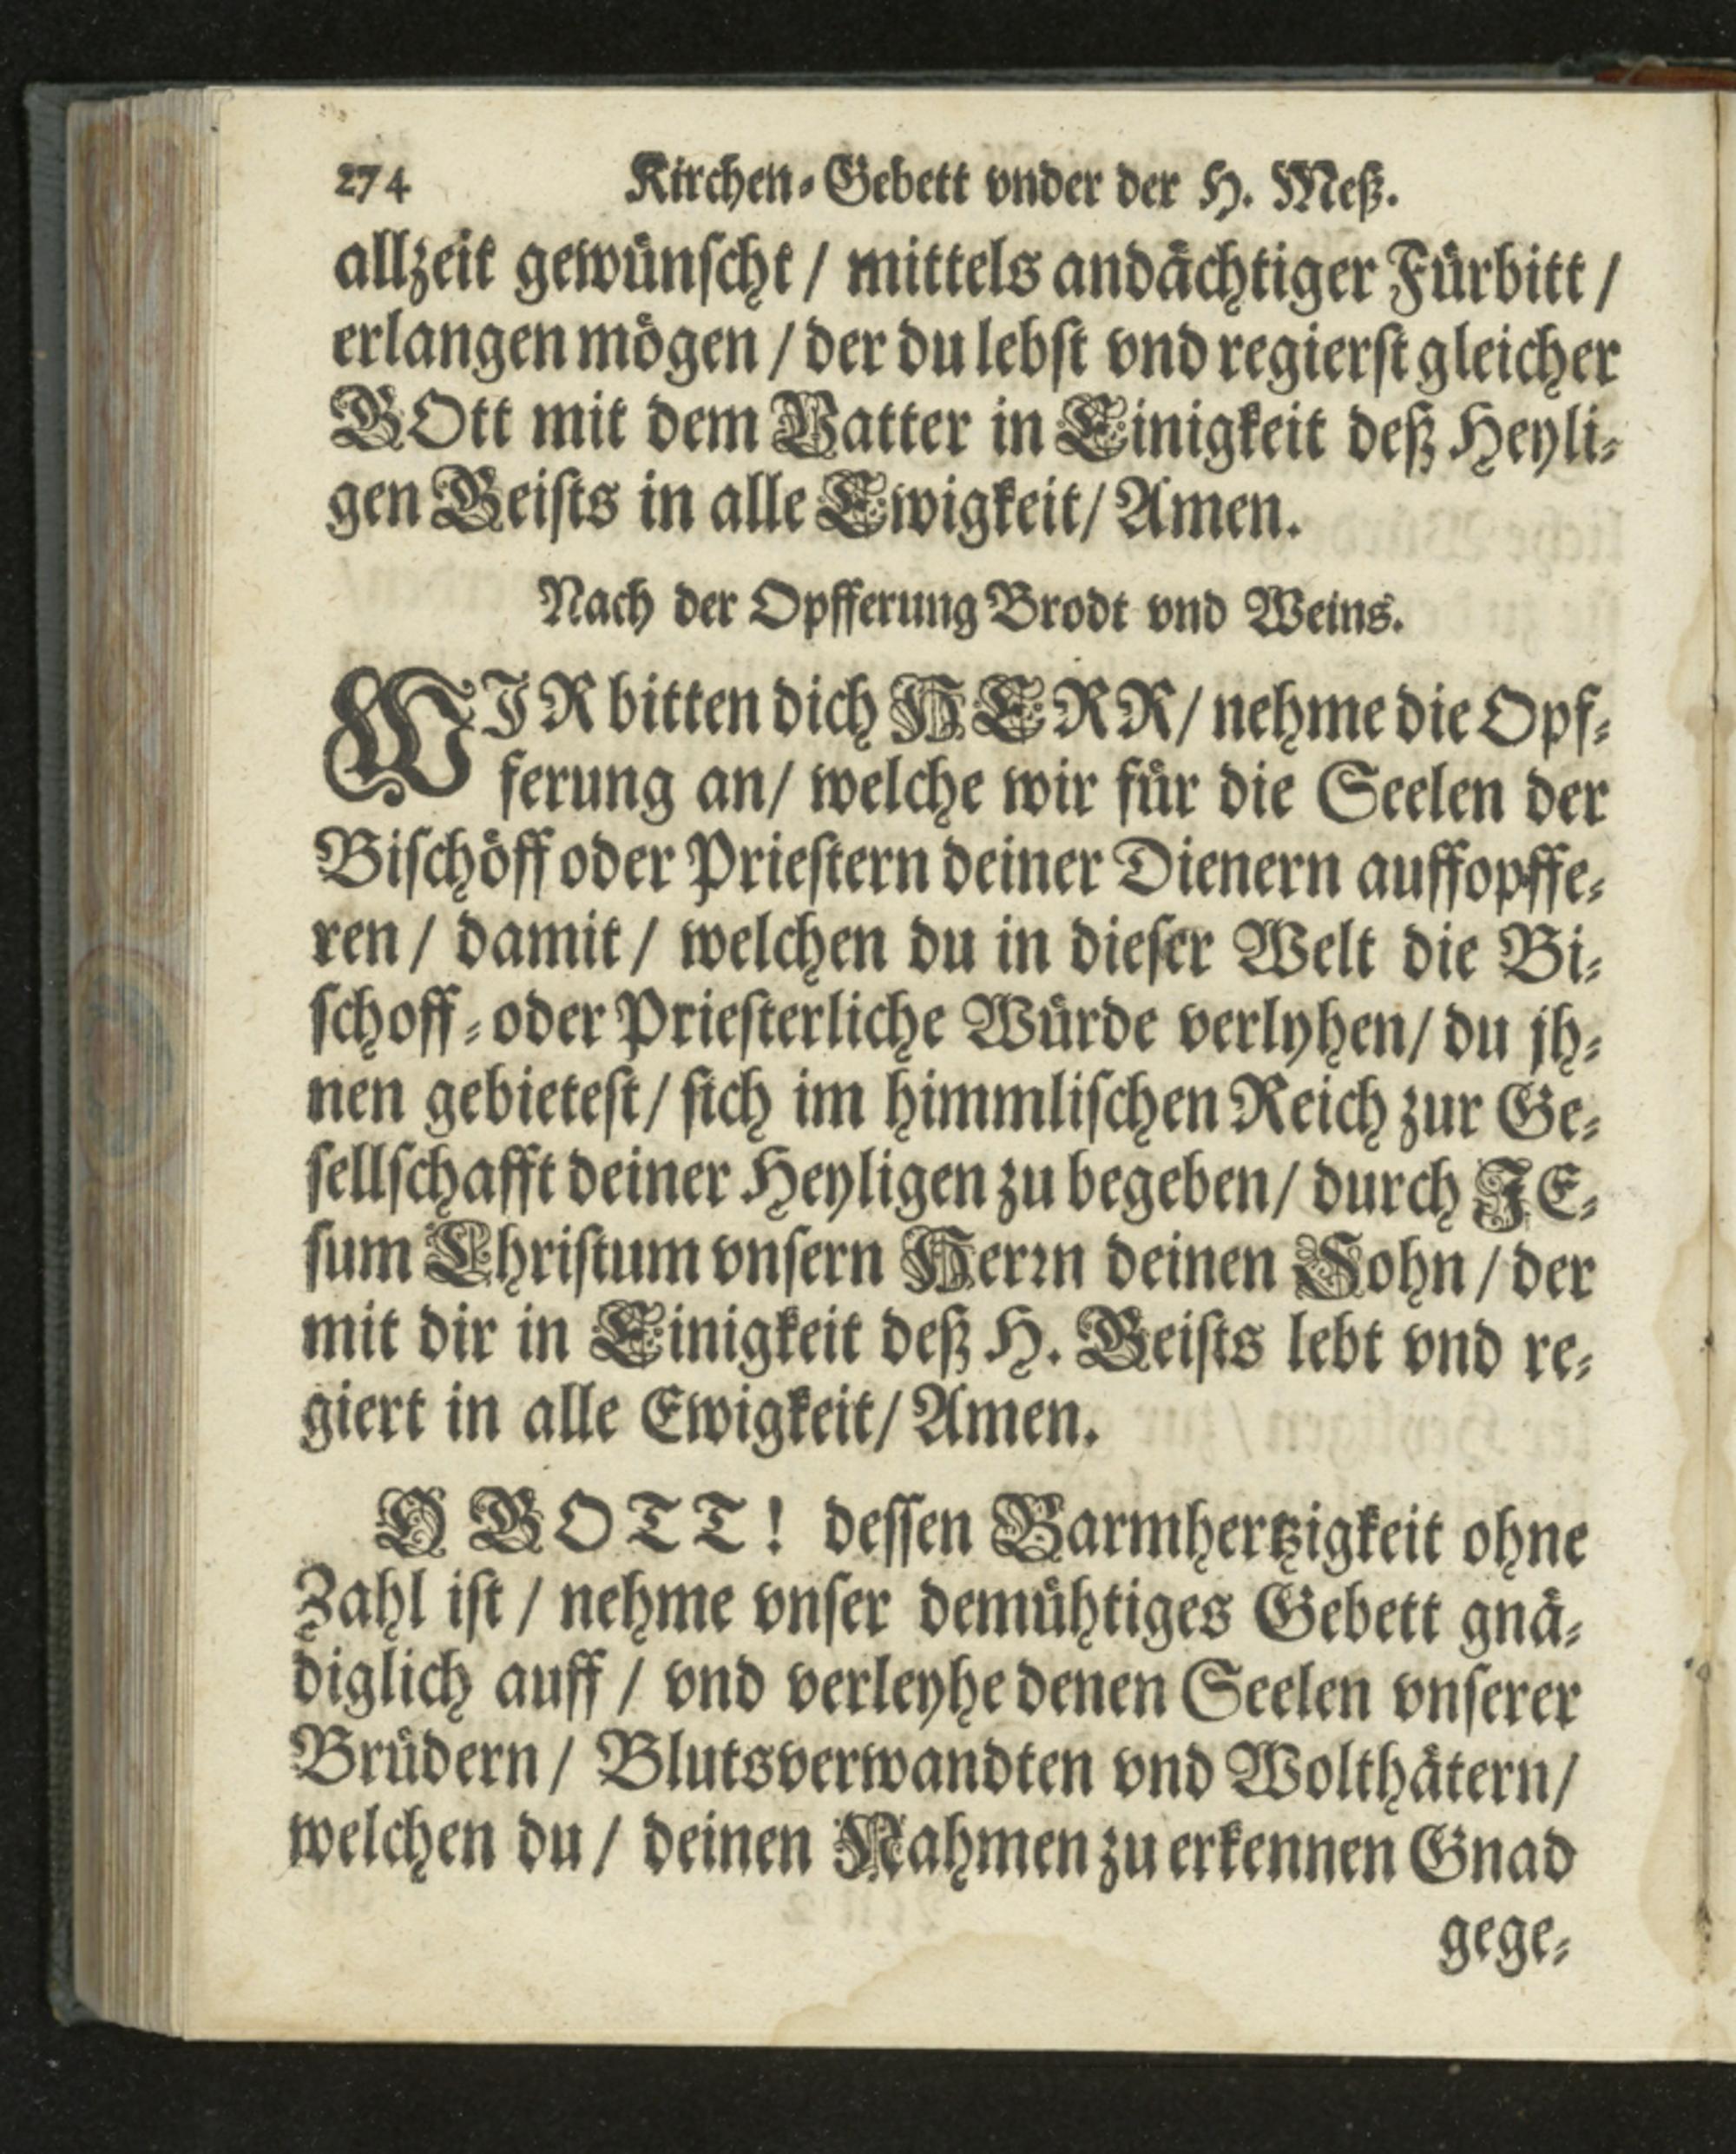 274 Kirchen-Gebett vnder der H. Meß.
allzeit gewünscht / mittels andächtiger Fürbitt /
erlangen mögen / der du lebst vnd regierst gleicher
GOtt mit dem Vatter in Einigkeit deß Heyli-
gen Geists in alle Ewigkeit / Amen.
Nach der Opfferung Brodt vnd Weins.
WIR bitten dich HERR / nehme die Opf-
ferung an / welche wir für die Seelen der
Bischöff oder Priestern deiner Dienern auffopffe-
ren / damit / welchen du in dieser Welt die Bi-
schoff- oder Priesterliche Würde verlyhen / du jh-
nen gebietest / sich im himmlischen Reich zur Ge-
sellschafft deiner Heyligen zu begeben / durch JE-
sum Christum vnsern Herrn deinen Sohn / der
mit dir in Einigkeit deß H. Geists lebt vnd re-
giert in alle Ewigkeit / Amen.
O GOTT! dessen Barmhertzigkeit ohne
Zahl ist / nehme vnser demühtiges Gebett gnä-
diglich auff / vnd verleyhe denen Seelen vnserer
Brüdern / Blutsverwandten vnd Wolthätern /
welchen du / deinen Nahmen zu erkennen Gnad
gege-